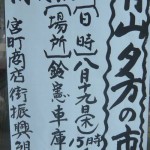 青山夕方の市
[日時]八月十九日(木)15時
[場所]鈴憲車庫
宮町商店街振興組